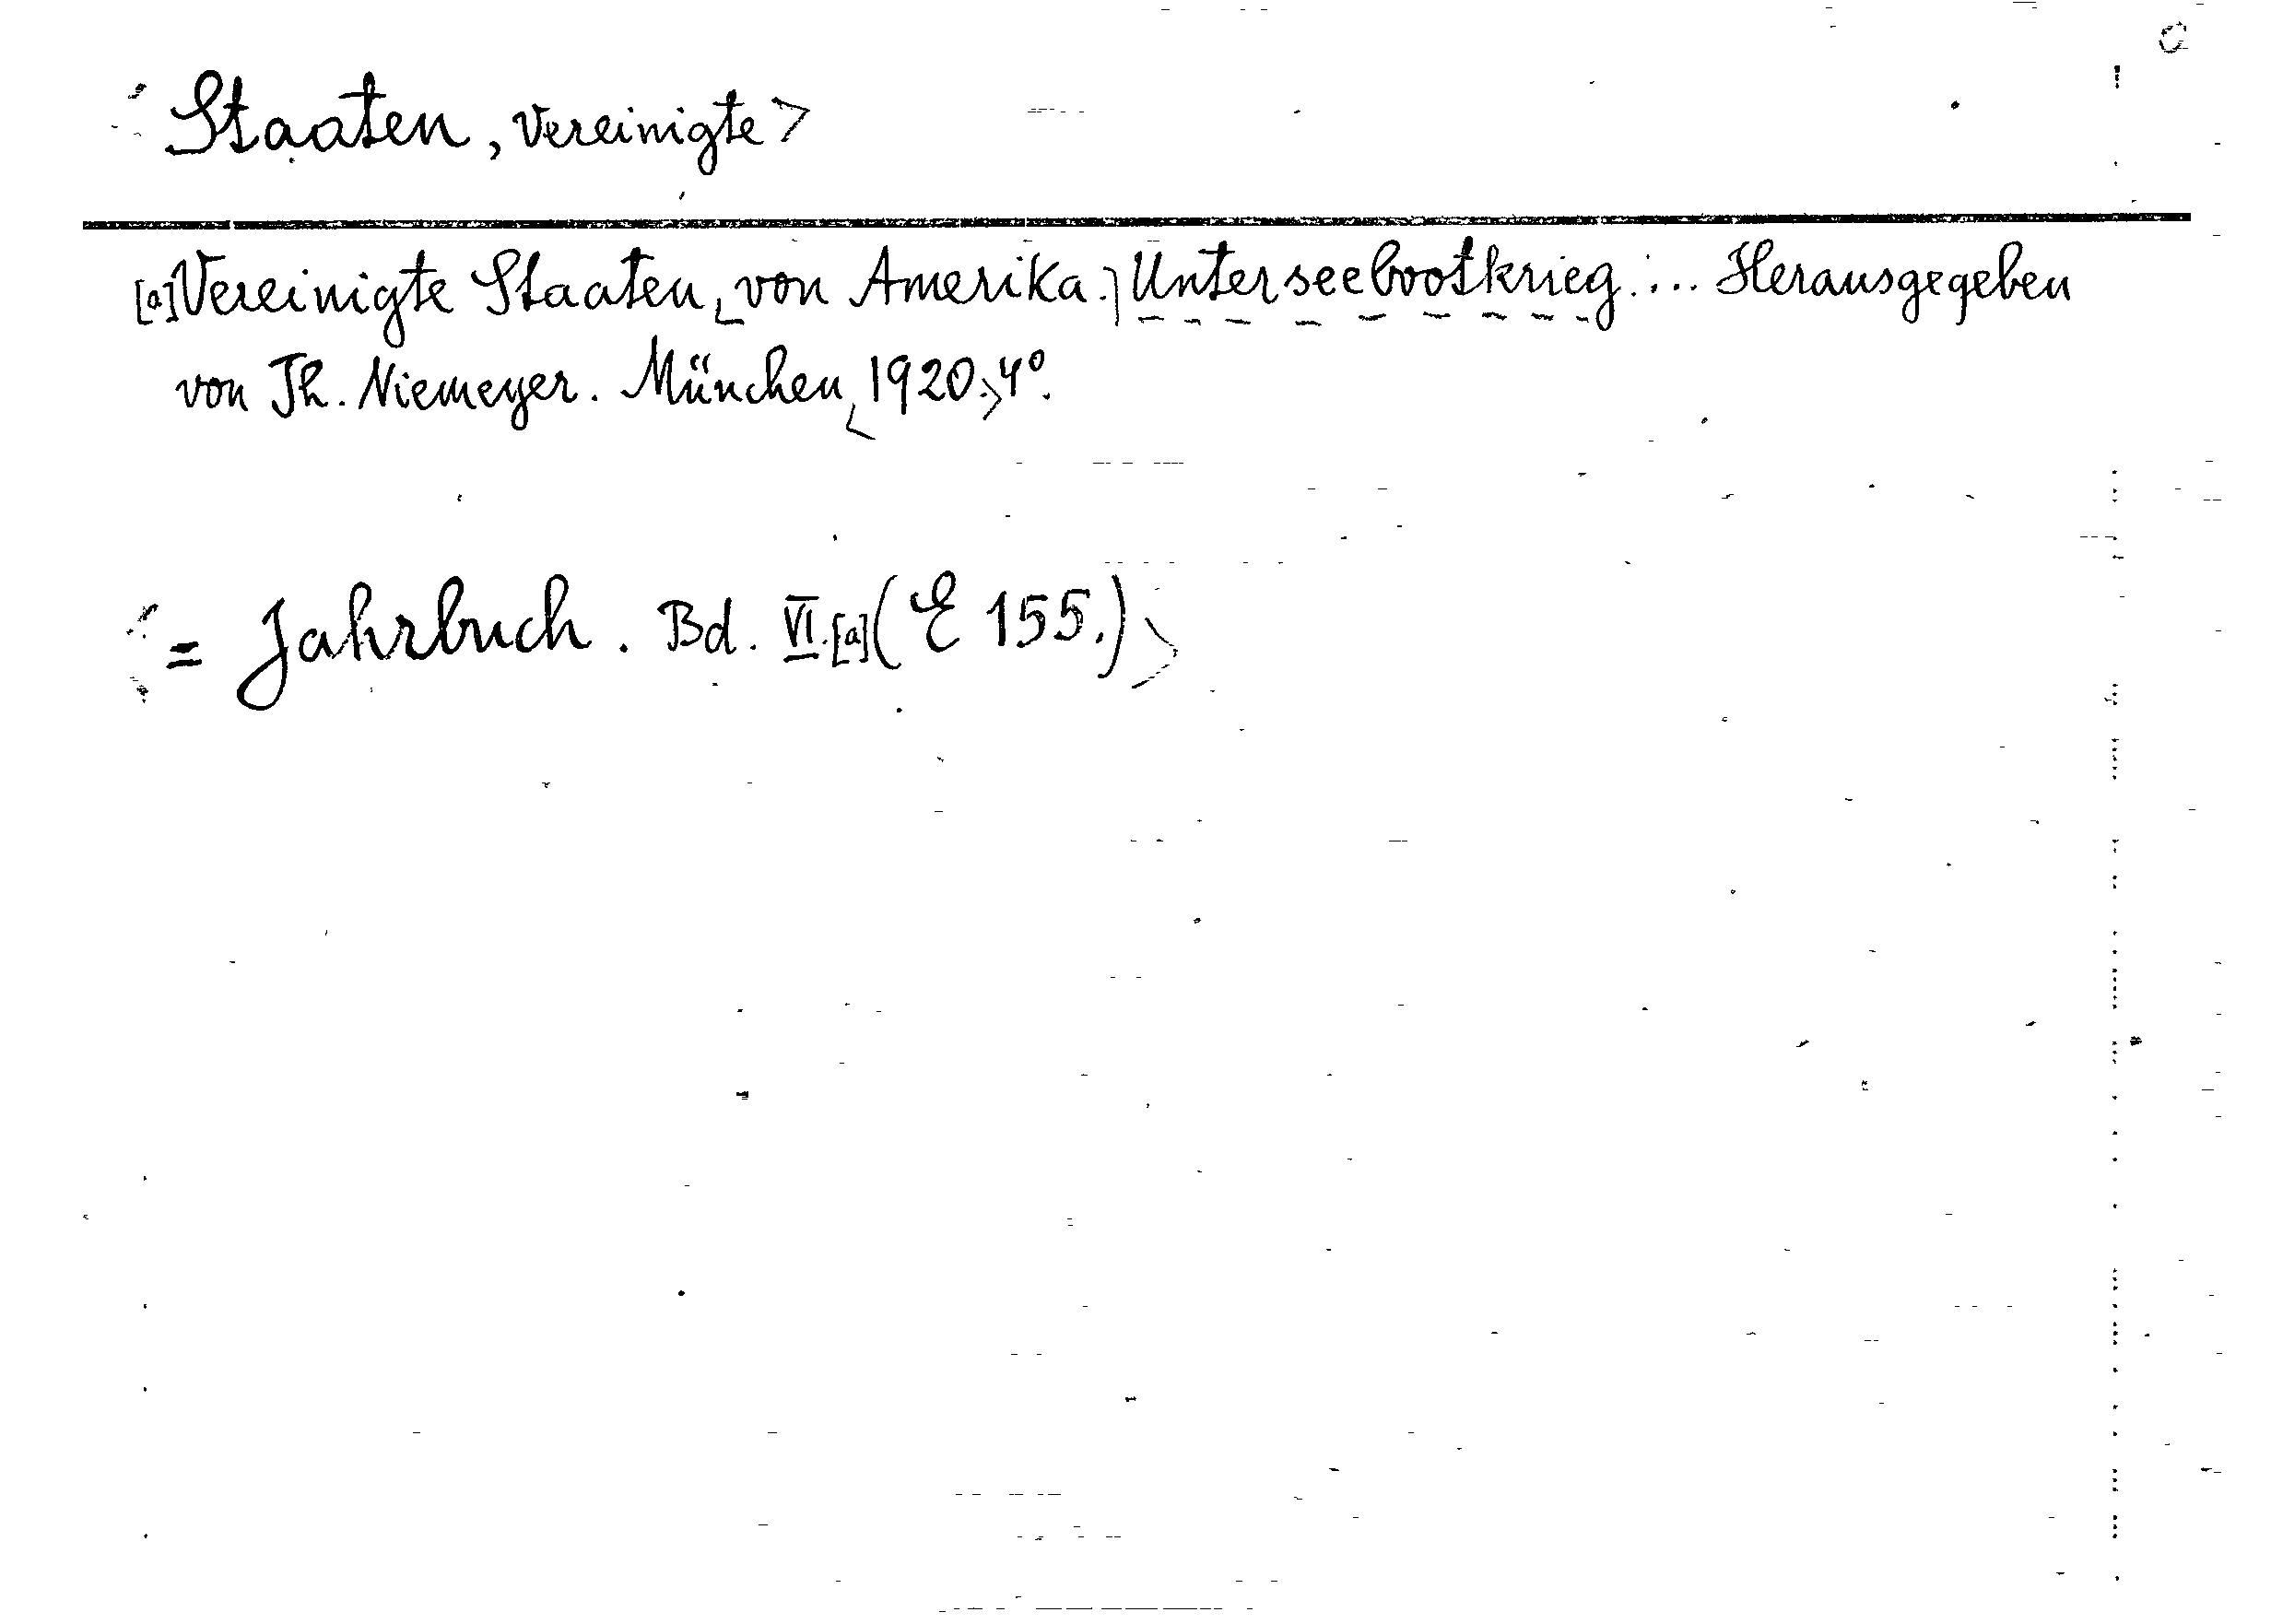 Staaten, Vereinigte>
[a] Vereinigte Staaten, von Amerika.] Unterseebootkrieg.... Herausgegeben
von Th. Niemeyer. München, <1920.> 4°.
= Jahrbuch. Bd. VI.[a] (E 155.)>